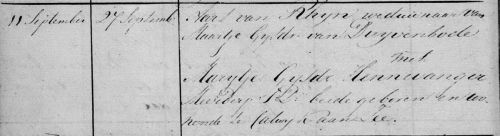 11 September 27 Septemb. Aart van Rhijn weduwenaar van
Maartje Gijsdr van Duyvenbode
met
Marytje Gijsde Hennevanger
beide geboren en wo
nende te Catwyk aan Zee.